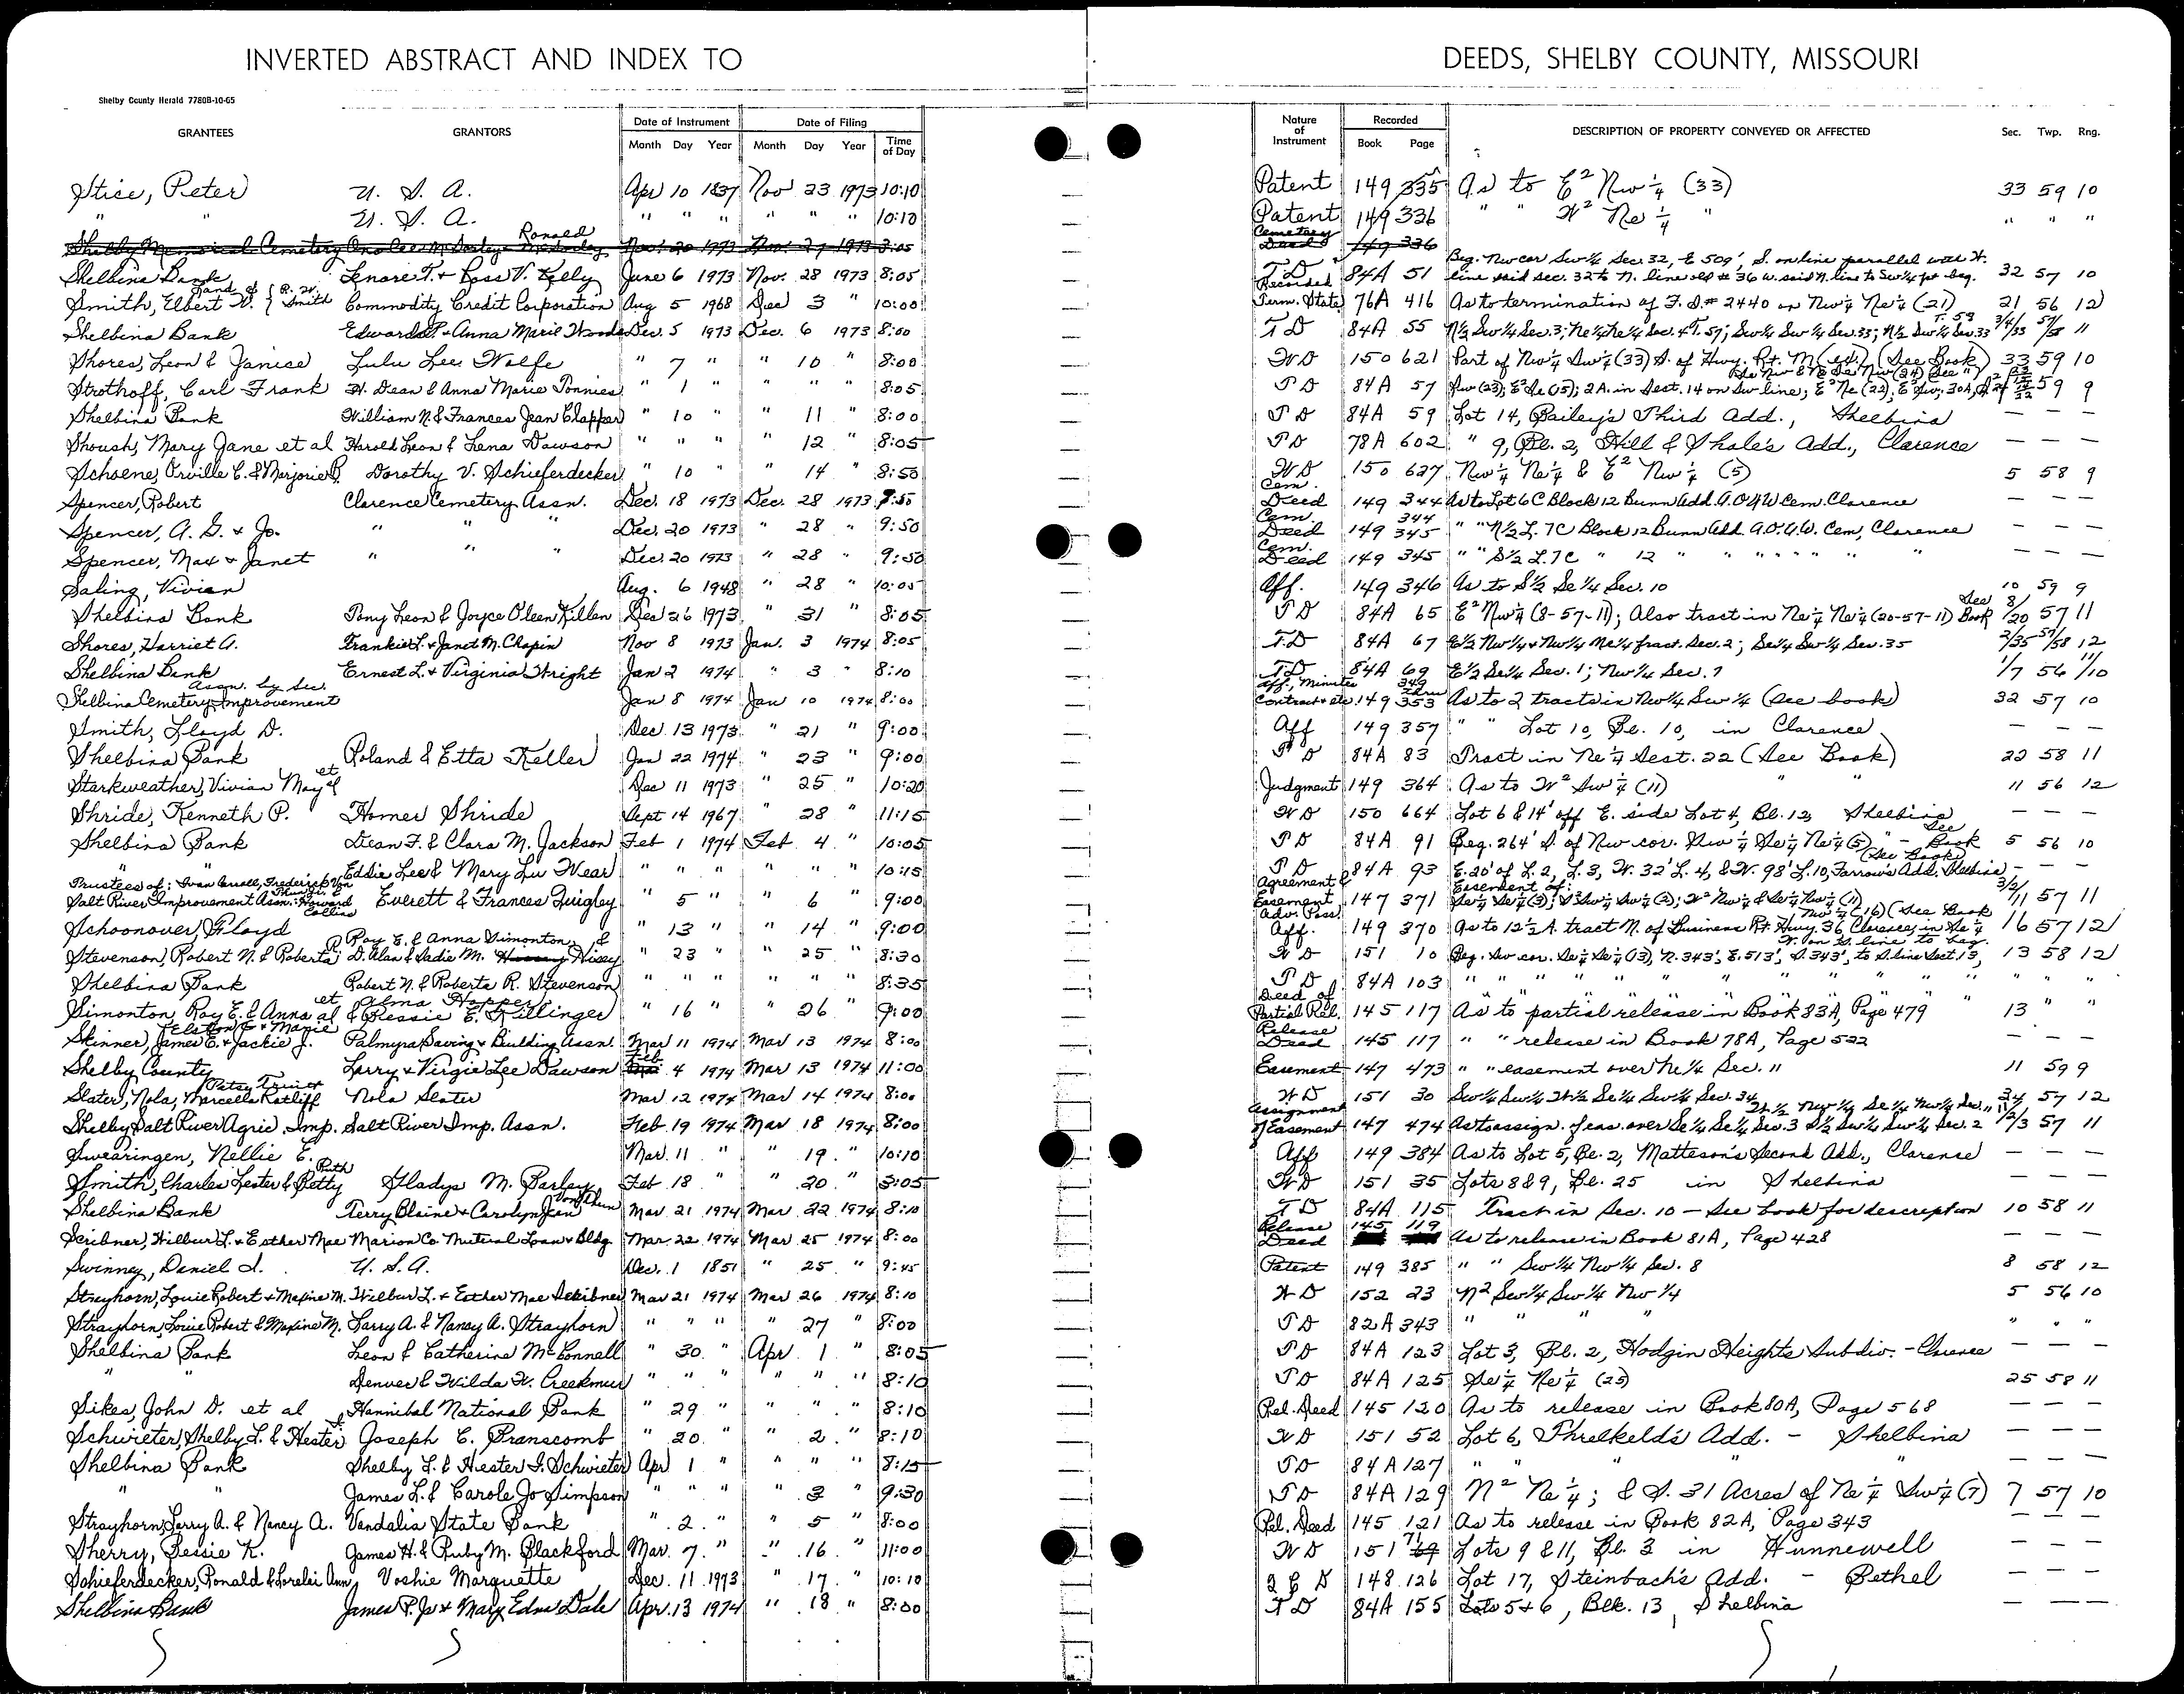 INVERTED ABSTRACT AND INDEX TO DEEDS, SHELBY COUNTY, MISSOURI
Shelby County Herald 7780B-10-65
GRANTEES GRANTORS Date of Instrument Month Day Year Date of Filing Month Day Year Time of Day Nature of Instrument Recorded Book Page DESCRIPTION OF PROPERTY CONVEYED OR AFFECTED Sec. Twp. Rng.
Stice, Peter U. S. A. Apr 10 1837 Nov 23 1973 10:10 Patent 149 335 As to E² Nw ¼ (33) 33 59 10
" " U. S. A. " " " " " " 10:10 Patent 149 336 " " W² Ne ¼ " " " "
Shelby Memorial Cemetery Ronald Nov. 20 1973 Nov. 27 1973 3:05 Cemetery Deed 149 336
Shelbina Bank Lenore T. & Ross V. Kelly June 6 1973 Nov. 28 1973 8:05 T D 84A 51 Beg. Nw cor Sw ¼ Sec. 32, E 509', S. on line parallel with W. line said sec. 32 to N. line old # 36 W. said N. line to Sw ¼ pt beg. 32 57 10
Smith, Elbert V. } Land of R. W. Smith Commodity Credit Corporation Aug 5 1968 Dec 3 " 10:00 Recorded Term. State 76A 416 As to termination of F. S. # 2440 on Nw ¼ Ne ¼ (21) 21 56 12
Shelbina Bank Edward P. & Anna Marie Woods Dec. 5 1973 Dec. 6 1973 8:00 T D 84A 55 N½ Sw ¼ Sec. 3; Ne ¼ Ne ¼ Sec. 4 T. 57; Sw ¼ Sw ¼ Sec. 33; N½ Sw ¼ Sec. 33 T. 58 3/4/33 57/58 11
Shores, Leon & Janice Lulu Lee Wolfe " 7 " " 10 " 8:00 W D 150 621 Part of Nw ¼ Sw ¼ (33) S. of Hwy. Rt. M (ex.) (See Book) 33 59 10
Strothoff, Carl Frank H. Dean & Anna Marie Tonnies " 1 " " " " 8:05 T D 84A 57 Sw (23); E² Se (15); 2A. in Sect. 14 on Sw line; E² Ne (22); 59 9
Shelbina Bank William N. & Frances Jean Clapper " 10 " " 11 " 8:00 T D 84A 59 Lot 14, Bailey's Third Add., Shelbina — — —
Shouch, Mary Jane et al Harold Leon & Lena Dawson " " " " 12 " 8:05 T D 78A 602 " 9, Bl. 2, Hill & Shale's Add., Clarence — — —
Schoene, Orville C. & Marjorie B. Dorothy V. Schieferdecker " 10 " " 14 " 8:50 W D 150 627 Nw ¼ Ne ¼ & E² Nw ¼ (5) 5 58 9
Spencer, Robert Clarence Cemetery Assn. Dec. 18 1973 Dec. 28 1973 Cem. Deed 149 344 As to Lot 6 C Block 12 Bunn Add. A.O.U.W Cem. Clarence — — —
Spencer, A. G. & Jo. " " " Dec. 20 1973 " 28 " 9:50 Cem. Deed 149 344 345 " " N½ L. 7C Block 12 Bunn Add. A.O.U.W. Cem, Clarence — — —
Spencer, Max & Janet " " " Dec. 20 1973 " 28 " 9:50 Cem. Deed 149 345 " " S½ L. 7C " 12 " " " " " " " — — —
Saling, Vivian Aug. 6 1948 " 28 " 10:05 Aff. 149 346 As to S½ Se ¼ Sec. 10 10 59 9
Shelbina Bank Tony Leon & Joyce O'leen Killen Dec 26 1973 " 31 " 8:05 T D 84A 65 E² Nw ¼ (8-57-11); Also tract in Ne ¼ Ne ¼ (20-57-11) See Book 8/20 57 11
Shores, Harriet A. Frankie L. & Janet M. Chapin Nov 8 1973 Jan. 3 1974 8:05 T.D 84A 67 E½ Nw ¼ & Nw ¼ Ne ¼ fract. Sec. 2; Se ¼ Sw ¼ Sec. 35 2/35 57/58 12
Shelbina Bank Ernest L. & Virginia Wright Jan 2 1974 " 3 " 8:10 T D 84A 69 E½ Se ¼ Sec. 1; Nw ¼ Sec. 7 1/7 56 11/10
Shelbina Cemetery Improvement Assn. by Sec. Jan 8 1974 Jan 10 1974 8:00 Aff., Minutes Contract & etc. 149 349 thru 353 As to 2 tracts in Nw ¼ Sw ¼ (See book) 32 57 10
Smith, Lloyd D. Dec. 13 1973 " 21 " 9:00 Aff 149 357 " " Lot 10, Bl. 10, in Clarence — — —
Shelbina Bank Roland & Etta Keller Jan 22 1974 " 23 " 9:00 T D 84A 83 Tract in Ne ¼ Sect. 22 (See Book) 22 58 11
Starkweather, Vivian May et al Dec 11 1973 " 25 " 10:20 Judgment 149 364 As to W² Sw ¼ (11) " " 11 56 12
Shride, Kenneth P. Homer Shride Sept 14 1967 " 28 " 11:15 W D 150 664 Lot 6 & 14' off E. side Lot 4, Bl. 12, Shelbina — — —
Shelbina Bank Dean F. & Clara M. Jackson Feb 1 1974 Feb 4 " 10:05 T D 84A 91 Beg. 264' S. of Nw cor. Nw ¼ Se ¼ Ne ¼ (5) " - See Book 5 56 10
" " Eddie Lee & Mary Lu Wear " " " " " " 10:15 T D 84A 93 E. 20' of L. 2, L. 3, W. 32' L. 4, & W. 98' L. 10, Farrow's Add, Shelbina (See Book) — — —
Trustees of: Ivan Carroll, Frederick Von Thun, Jr. & Howard Collins Salt River Improvement Assn. Everett & Frances Quigley " 5 " " 6 " 9:00 Agreement & Easement 147 371 Easement of: Se ¼ Se ¼ (3); S² Sw ¼ Sw ¼ (2); W² Nw ¼ & Se ¼ Nw ¼ (11) 3/2/11 57 11
Schoonover, Floyd " 13 " " 14 " 9:00 Adv. Poss. Aff. 149 370 As to 12½ A. tract N. of Business Rt. Hwy. 36 Clarence, in Se ¼ Nw ¼ (16) (See Book 16 57 12
Stevenson, Robert N. & Roberta R. Roy E. & Anna Simonton, & D. Alan & Sadie M. Hisey " 23 " " 25 " 8:30 W D 151 10 Beg. Sw cor. Se ¼ Se ¼ (13), N. 343', E. 513', S. 343', to S. line Sect 13, W. on S. line to beg. 13 58 12
Shelbina Bank Robert N. & Roberta R. Stevenson " " " " " " 8:35 T D 84A 103 " " " " " " " " " " "
Simonton, Roy E. & Anna et al Alma Hopper & Bessie E. Killinger " 16 " " 26 " 9:00 Deed of Partial Rel. 145 117 As to partial release in Book 83A, Page 479 13 " "
Skinner, James E. & Jackie J. Elston E. & Marie Palmyra Saving & Building Assn. Mar 11 1974 Mar 13 1974 8:00 Release Deed 145 117 " " release in Book 78A, Page 522 — — —
Shelby County Larry & Virgie Lee Dawson Feb 4 1974 Mar 13 1974 11:00 Easement 147 473 " " easement over Ne ¼ Sec. 11 11 59 9
Slater, Nola, Marcella Ratliff Patsy Triner Nola Slater Mar 12 1974 Mar 14 1974 8:00 W D 151 30 Sw ¼ Sw ¼ W½ Se ¼ Sw ¼ Sec. 34 34 57 12
Shelby Salt River Agric. Imp. Salt River Imp. Assn. Feb. 19 1974 Mar 18 1974 8:00 Assignment of Easement 147 474 As to assign. of eas. over Se ¼ Se ¼ Sec. 3 S½ Sw ¼ Sw ¼ Sec. 2 W½ Nw ¼ Se ¼ Nw ¼ Sec. 11 57 11
Swearingen, Nellie E. Mar. 11 " " 19 " 10:10 Aff 149 384 As to Lot 5, Bl. 2, Matteson's Second Add., Clarence — — —
Smith, Charles Lester & Betty Ruth Gladys M. Barley Feb 18 " " 20 " 3:05 W D 151 35 Lots 8 & 9, Bl. 25 in Shelbina — — —
Shelbina Bank Terry Blaine & Carolyn Jean VonThun Mar 21 1974 Mar 22 1974 8:10 T D 84A 115 Tract in Sec. 10 — See book for description 10 58 11
Scribner, Wilbur L. & Esther Mae Marion Co Mutual Loan & Bldg Mar 22 1974 Mar 25 1974 8:00 Release Deed 145 119 As to release in Book 81A, Page 428 — — —
Swinney, Daniel S. U. S. A. Dec. 1 1851 " 25 " 9:45 Patent 149 385 " " Sw ¼ Nw ¼ Sec. 8 8 58 12
Strayhorn, Louie Robert & Maxine M. Wilbur L. & Esther Mae Scribner Mar 21 1974 Mar 26 1974 8:10 W D 152 23 N² Sw ¼ Sw ¼ Nw ¼ 5 56 10
Strayhorn, Louie Robert & Maxine M. Larry A. & Nancy A. Strayhorn " " " " 27 " 8:00 T D 82A 343 " " " " " " "
Shelbina Bank Leon & Catherine McConnell " 30 " Apr 1 " 8:05 T D 84A 123 Lot 3, Bl. 2, Hodgin Heights Subdiv. - Clarence — — —
" " Denver & Wilda W. Creekmur " " " " " " 8:10 T D 84A 125 Se ¼ Ne ¼ (25) 25 58 11
Sikes, John D. et al Hannibal National Bank " 29 " " " " 8:10 Rel. Deed 145 120 As to release in Book 80A, Page 568 — — —
Schwieter, Shelby L. & Hester I. Joseph C. Branscomb " 20 " " 2 " 8:10 W D 151 52 Lot 6, Threlkeld's Add. - Shelbina — — —
Shelbina Bank Shelby L. & Hester I. Schwieter Apr 1 " " " " 8:15 T D 84A 127 " " " " — — —
" " James L. & Carole Jo Simpson " " " " 3 " 9:30 T D 84A 129 N² Ne ¼; & S. 31 Acres of Ne ¼ Sw ¼ (7) 7 57 10
Strayhorn, Larry A. & Nancy A. Vandalia State Bank " 2 " " 5 " 8:00 Rel. Deed 145 121 As to release in Book 82A, Page 343 — — —
Sherry, Bessie K. James H. & Ruby M. Blackford Mar. 7 " " 16 " 11:00 W D 151 71 69 Lots 9 & 11, Bl. 3 in Hunnewell — — —
Schieferdecker, Ronald & Lorelei Ann Voshie Marquette Dec. 11 1973 " 17 " 10:10 Q C D 148 126 Lot 17, Steinbach's Add. - Bethel — — —
Shelbina Bank James P. Jr & Mary Edna Dale Apr. 13 1974 " 18 " 8:00 T D 84A 155 Lots 5 & 6, Blk. 13, Shelbina — — —